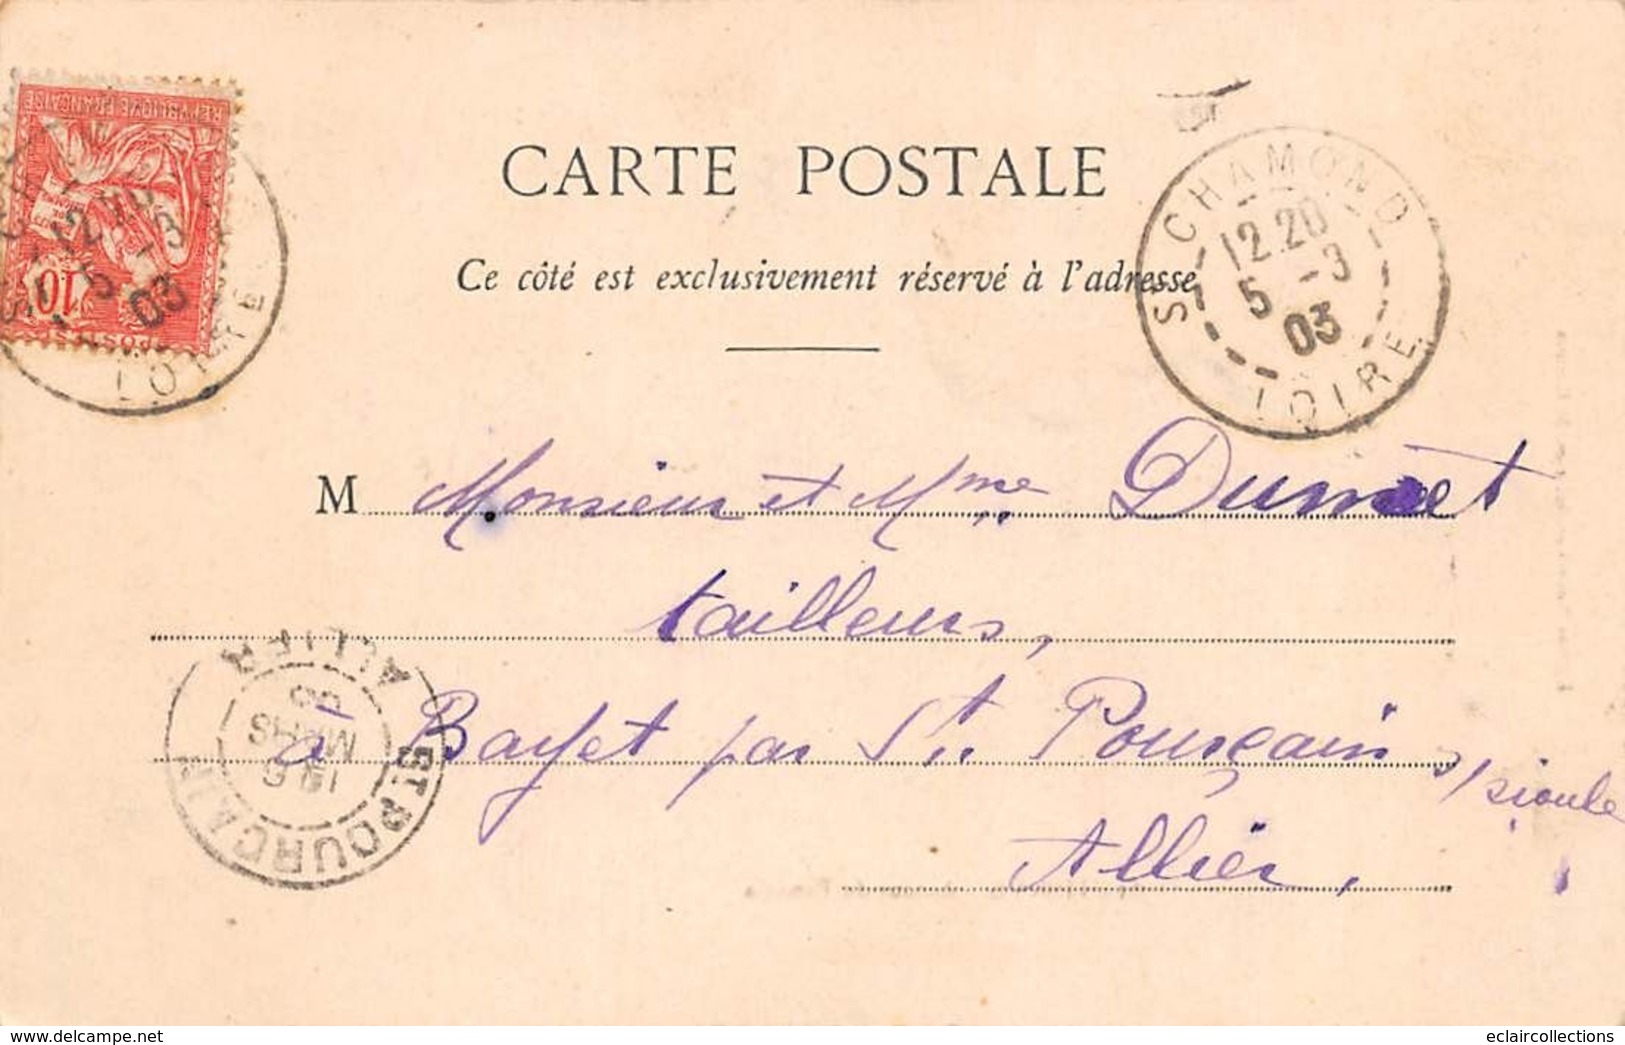 REPVBLIQVE FRANÇAISE
10
POSTES
12.20
5 -3
03
LOIRE
CARTE POSTALE
Ce côté est exclusivement réservé à l'adresse
ST CHAMOND
12.20
5 -3
03
LOIRE
M Monsieur et Mme Dumet
tailleurs,
à Bayet par St. Pourçain s/ sioule
Allier,
ST POURÇAIN
MARS
03
ALLIER
www.delcampe.net
eclaircollections